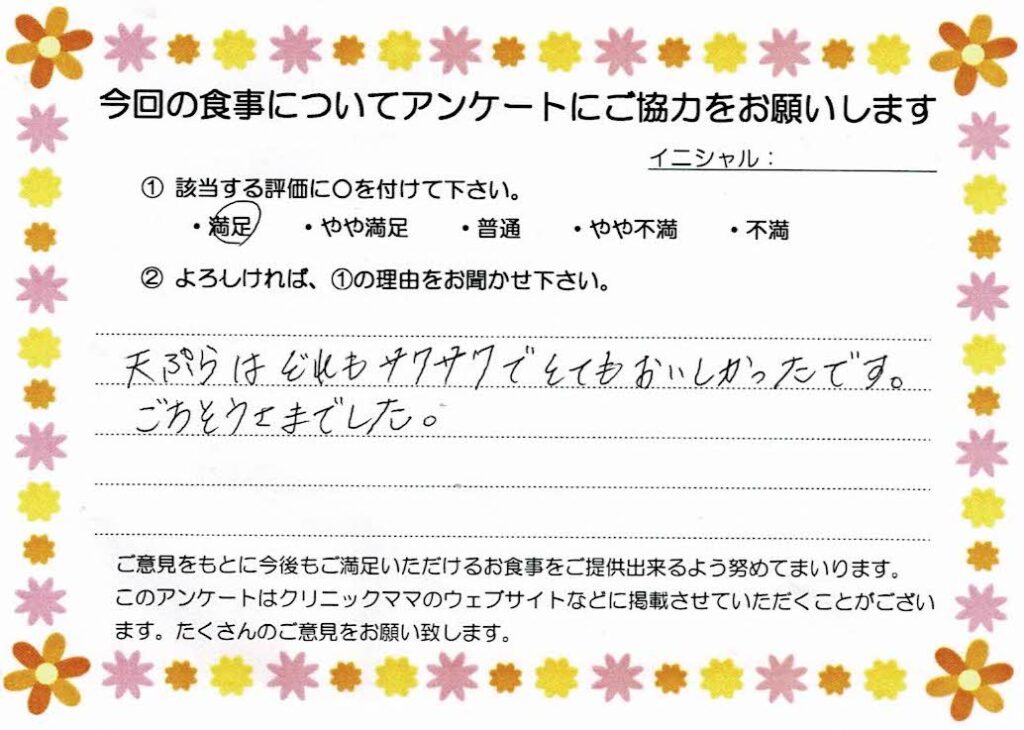 今回の食事についてアンケートにご協力をお願いします
イニシャル：
① 該当する評価に〇を付けて下さい。
・満足 ・やや満足 ・普通 ・やや不満 ・不満
② よろしければ、①の理由をお聞かせ下さい。
天ぷらはどれもサクサクでとてもおいしかったです。
ごちそうさまでした。
ご意見をもとに今後もご満足いただけるお食事をご提供出来るよう努めてまいります。
このアンケートはクリニックママのウェブサイトなどに掲載させていただくことがござい
ます。たくさんのご意見をお願い致します。